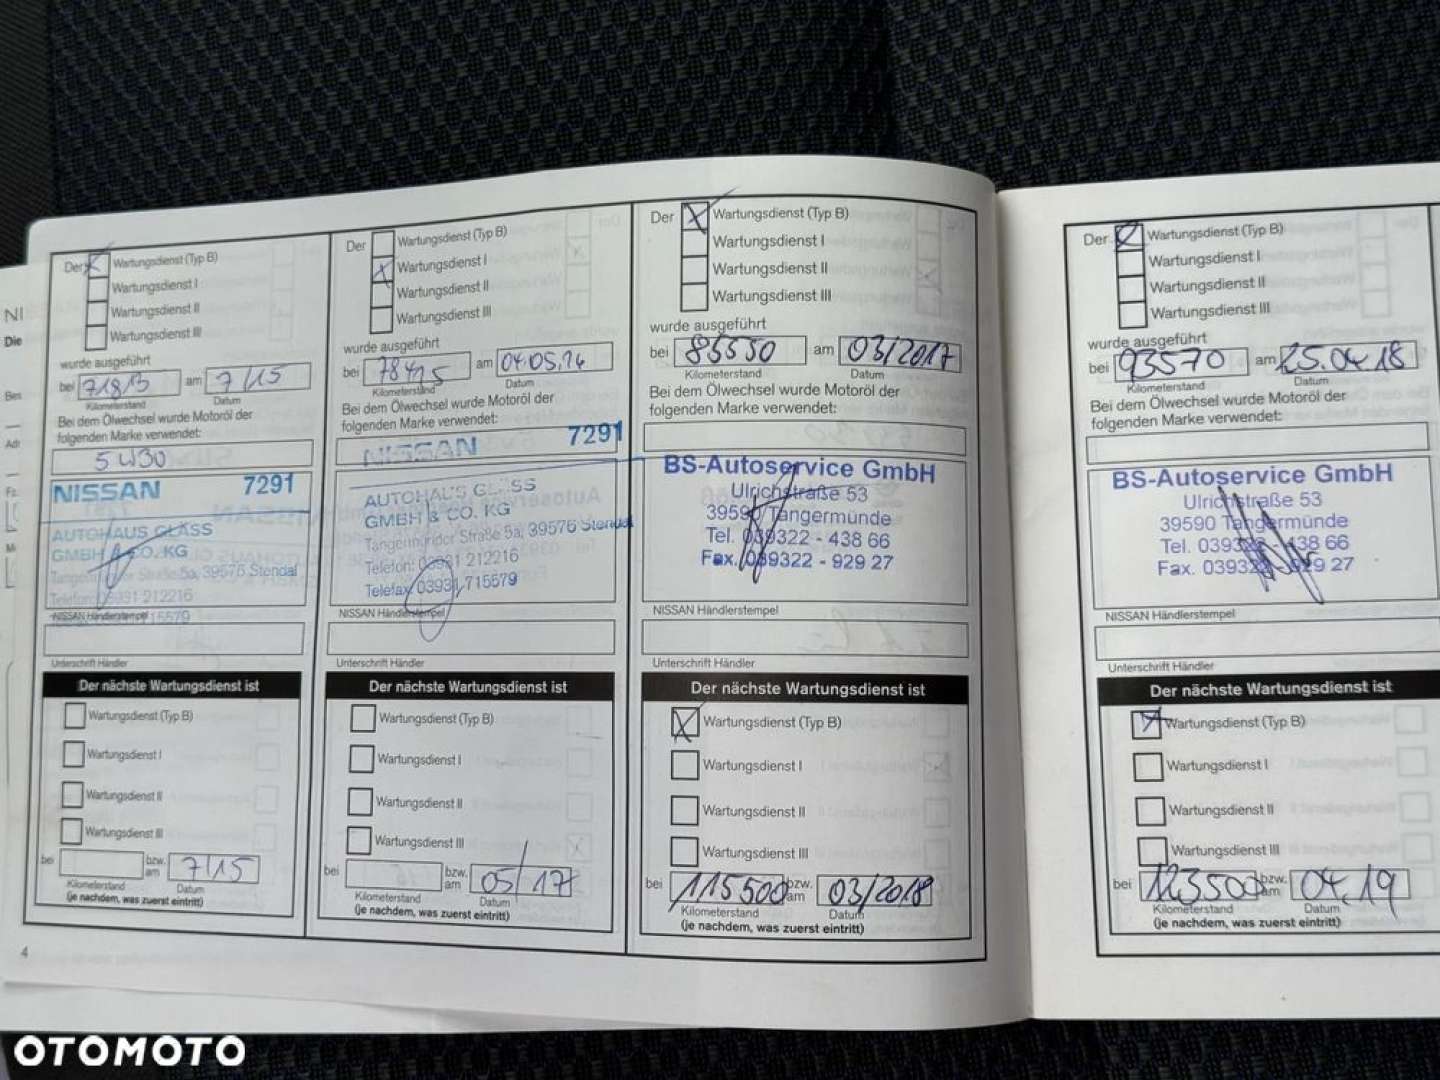 NI
Die
Der
Wartungsdienst (Typ B)
Wartungsdienst I
Wartungsdienst II
Wartungsdienst III
wurde ausgeführt
bei 71813 am 7/15
Kilometerstand Datum
Bei dem Ölwechsel wurde Motoröl der
folgenden Marke verwendet:
5W30
NISSAN 7291
AUTOHAUS GLÄSS
GMBH & CO. KG
Tangermünder Straße 5a, 39576 Stendal
Telefon: 03931 212216
NISSAN Händlerstempel
Unterschrift Händler
Der nächste Wartungsdienst ist
Wartungsdienst (Typ B)
Wartungsdienst I
Wartungsdienst II
Wartungsdienst III
bei bzw. am 7/15
Kilometerstand Datum
(je nachdem, was zuerst eintritt)
4
Der
Wartungsdienst (Typ B)
Wartungsdienst I
Wartungsdienst II
Wartungsdienst III
wurde ausgeführt
bei 78425 am
Kilometerstand Datum
Bei dem Ölwechsel wurde Motoröl der
folgenden Marke verwendet:
NISSAN 7291
AUTOHAUS GLÄSS
GMBH & CO. KG
Tangermünder Straße 5a, 39576 Stendal
Telefon: 03931 212216
Telefax: 03931 715579
NISSAN Händlerstempel
Unterschrift Händler
Der nächste Wartungsdienst ist
Wartungsdienst (Typ B)
Wartungsdienst I
Wartungsdienst II
Wartungsdienst III
bei bzw. am 05/17
Kilometerstand Datum
(je nachdem, was zuerst eintritt)
Der
Wartungsdienst (Typ B)
Wartungsdienst I
Wartungsdienst II
Wartungsdienst III
wurde ausgeführt
bei 85550 am 03/2017
Kilometerstand Datum
Bei dem Ölwechsel wurde Motoröl der
folgenden Marke verwendet:
BS-Autoservice GmbH
Ulrichstraße 53
39590 Tangermünde
Tel. 039322 - 438 66
Fax. 039322 - 929 27
NISSAN Händlerstempel
Unterschrift Händler
Der nächste Wartungsdienst ist
Wartungsdienst (Typ B)
Wartungsdienst I
Wartungsdienst II
Wartungsdienst III
bei 115500 bzw. am 03/2018
Kilometerstand Datum
(je nachdem, was zuerst eintritt)
Der
Wartungsdienst (Typ B)
Wartungsdienst I
Wartungsdienst II
Wartungsdienst III
wurde ausgeführt
bei 93570 am 25.04.18
Kilometerstand Datum
Bei dem Ölwechsel wurde Motoröl der
folgenden Marke verwendet:
BS-Autoservice GmbH
Ulrichstraße 53
39590 Tangermünde
Tel. 039322 - 438 66
Fax. 039322 - 929 27
NISSAN Händlerstempel
Unterschrift Händler
Der nächste Wartungsdienst ist
Wartungsdienst (Typ B)
Wartungsdienst I
Wartungsdienst II
Wartungsdienst III
bei 123500 bzw. am 04.19
Kilometerstand Datum
(je nachdem, was zuerst eintritt)
OTOMOTO